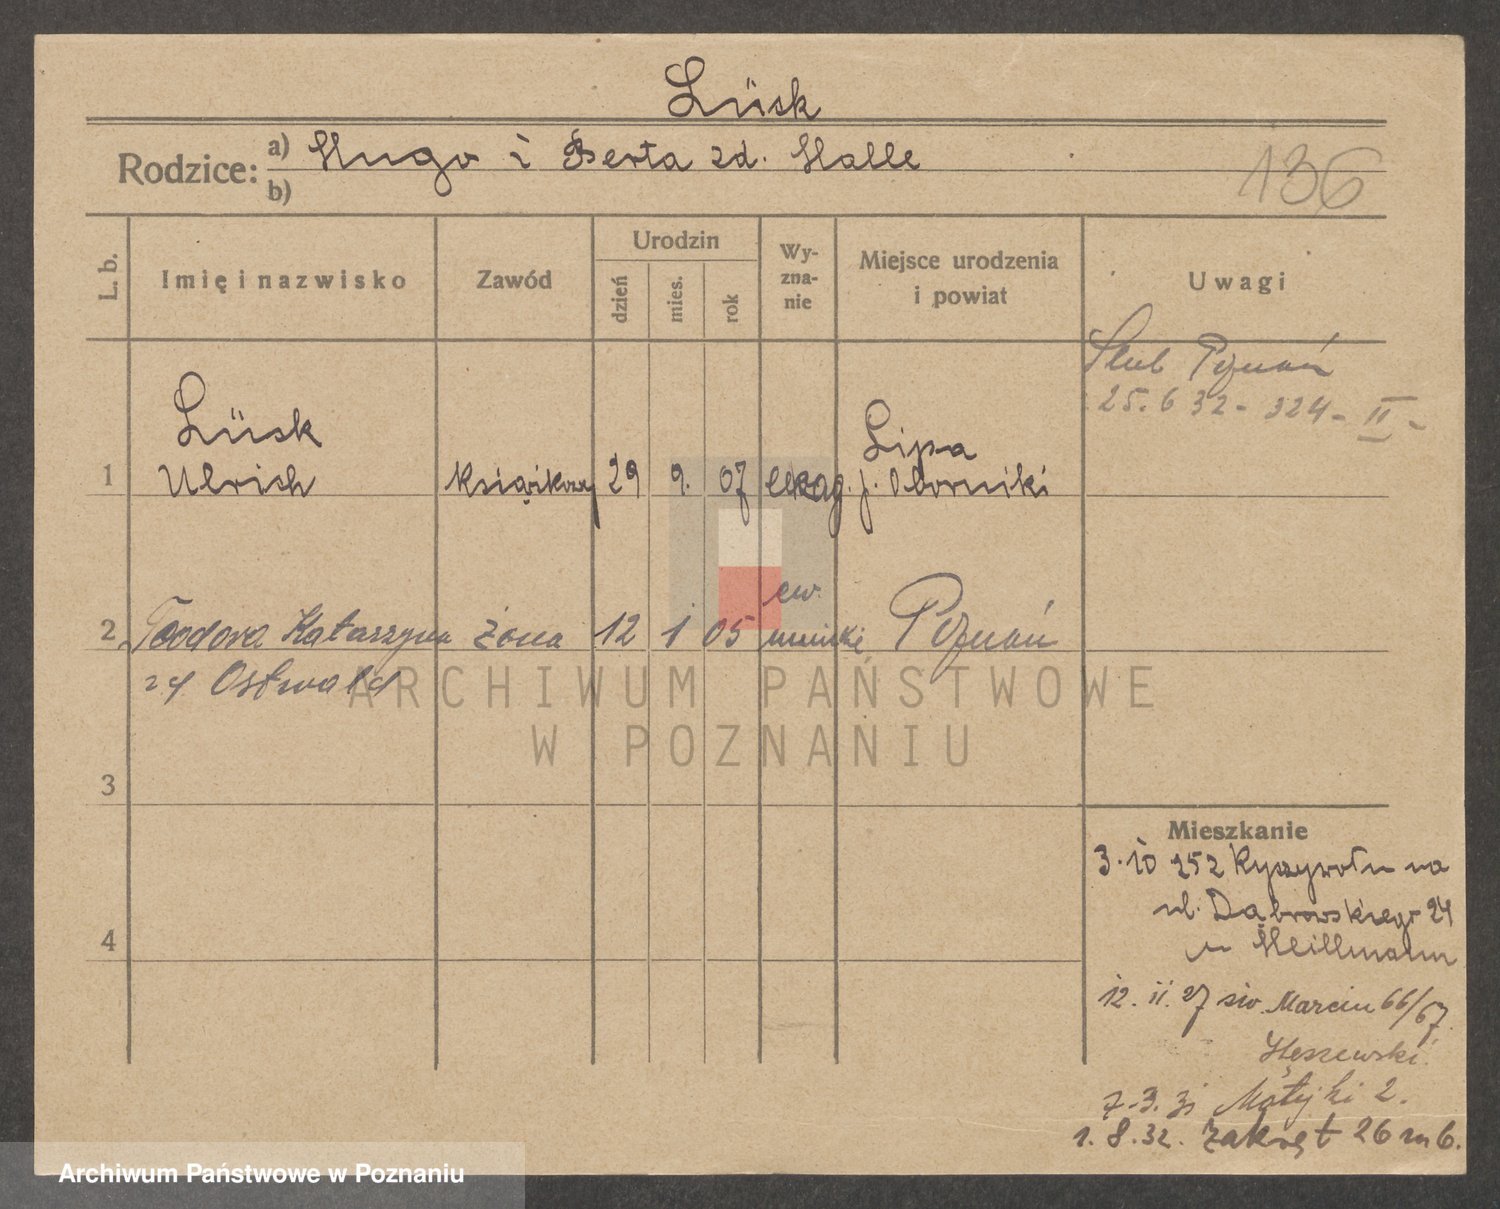 Lüsk
Rodzice: a) Hugo i Berta zd. Halle
b)
136
L. b.
Imię i nazwisko
Zawód
Urodzin
dzień
mies.
rok
Wy-
zna-
nie
Miejsce urodzenia
i powiat
Uwagi
Ślub Poznań
25. 6 32 - 324 - II -
1
Lüsk
Ulrich
książkowy
29
9.
07
ewag.
Lipa
p. Oborniki
2
Teodora Katarzyna
zd Ostwald
żona
12
1
05
ew.
Poznań
3
4
Mieszkanie
3. 10 252 Ryszywołu na
ul. Dąbrowskiego 24
u Heillmann
12. 11. 27 św. Marcin 66/67
7. 3. 31 Matejki 2.
1. 8. 32. Zakręt 26 m 6.
ARCHIWUM PAŃSTWOWE
W POZNANIU
Archiwum Państwowe w Poznaniu